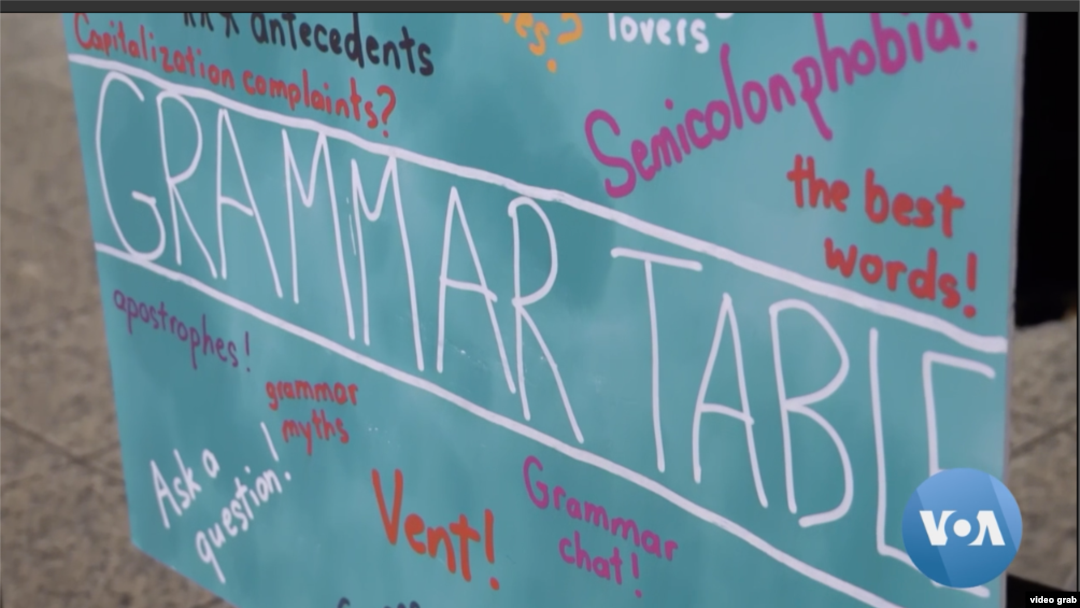 antecedents
lovers
Capitalization complaints?
Semicolonphobia!
the best
words!
GRAMMAR TABLE
apostrophes!
grammar
myths
Ask a
question!
Vent!
Grammar
chat!
VOA
video grab